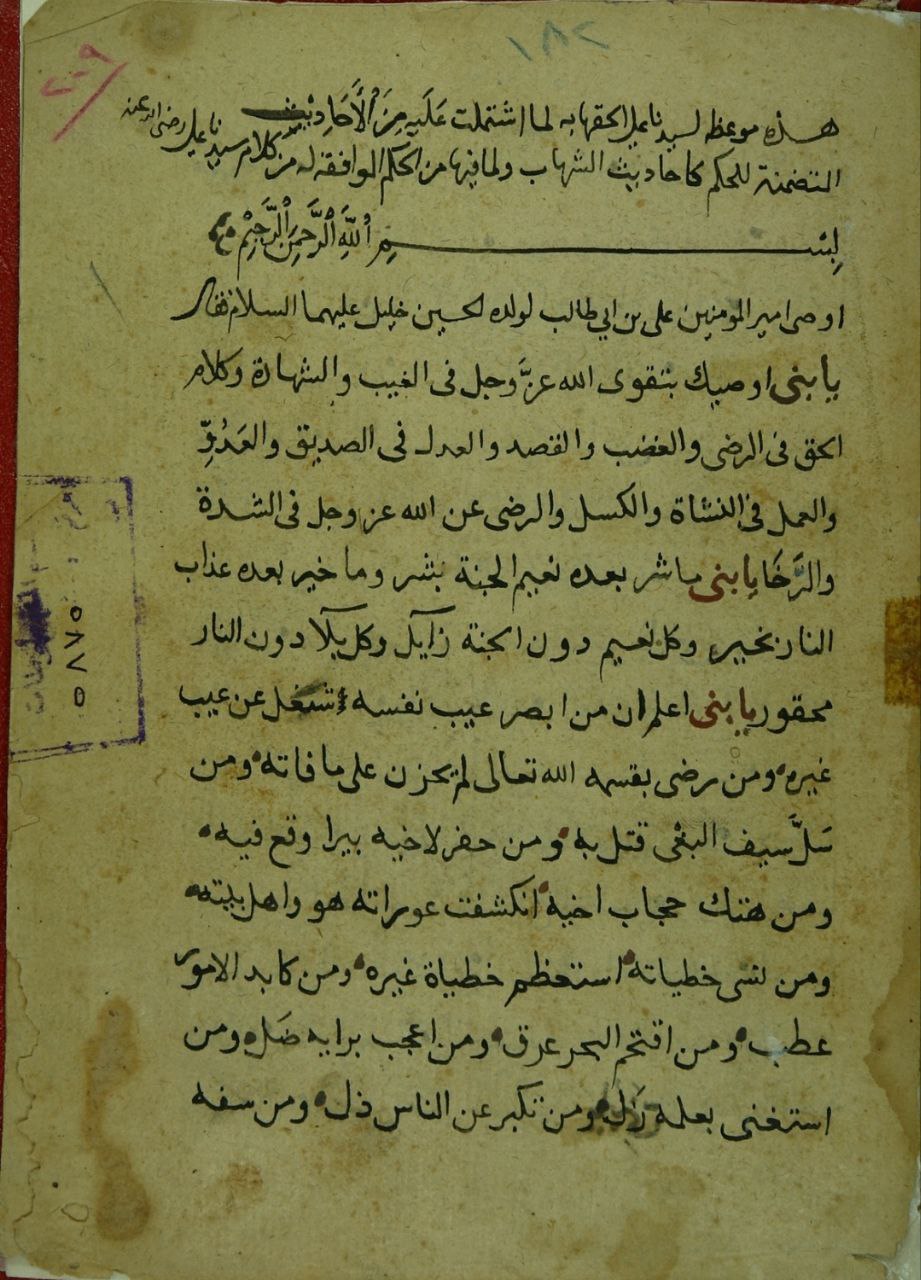 ١٨٢
٢٠٩
هذه موعظه لسيدنا على الحقها به لما اشتملت عَلَيهِ مِنَ الأَحَادِيث
المتضمنة للحكم كاحاديث الشهاب ولما فيها من الحكم الموافقه له من كلام سيدنا على رضى الله عنه
بِسْمِ اللَّهِ الرَّحمنِ الرَّحِيْمِ
اوصى امير المومنين على بن ابى طالب لولده الحسين خليل عليهما السلام فقال
يا بنى اوصيك بتقوى الله عزَّ وجل فى الغيب والشهادة وكلام
الحق فى الرضى والغضب والقصد والعدل فى الصديق والعَدُوِّ
والعمل فى النشاة والكسل والرضى عن الله عز وجل فى الشدة
والرَّخَا يا بنى ما شر بعده نعيم الجنة بشر وما خير بعده عذاب
النار بخير وكل نعيم دون الجنة زايل وكل بلا دون النار
محقور يا بنى اعلم ان من ابصر عيب نفسه اشتغل عن عيب
غيره ومن رضى بقسمه الله تعالى لم يحزن على ما فاته ومن
سَلَّ سيف البغى قتل به ومن حفر لاخيه بيرا وقع فيه
ومن هتك حجاب اخيه انكشفت عوراته هو واهل بيته
ومن نسى خطياته استعظم خطياة غيره ومن كابد الامور
عطب ومن اقتحم البحر غرق ومن اعجب برايه ضَل ومن
استغنى بعلمه زَل ومن تكبر عن الناس ذل ومن سفه
٥٨٧٥